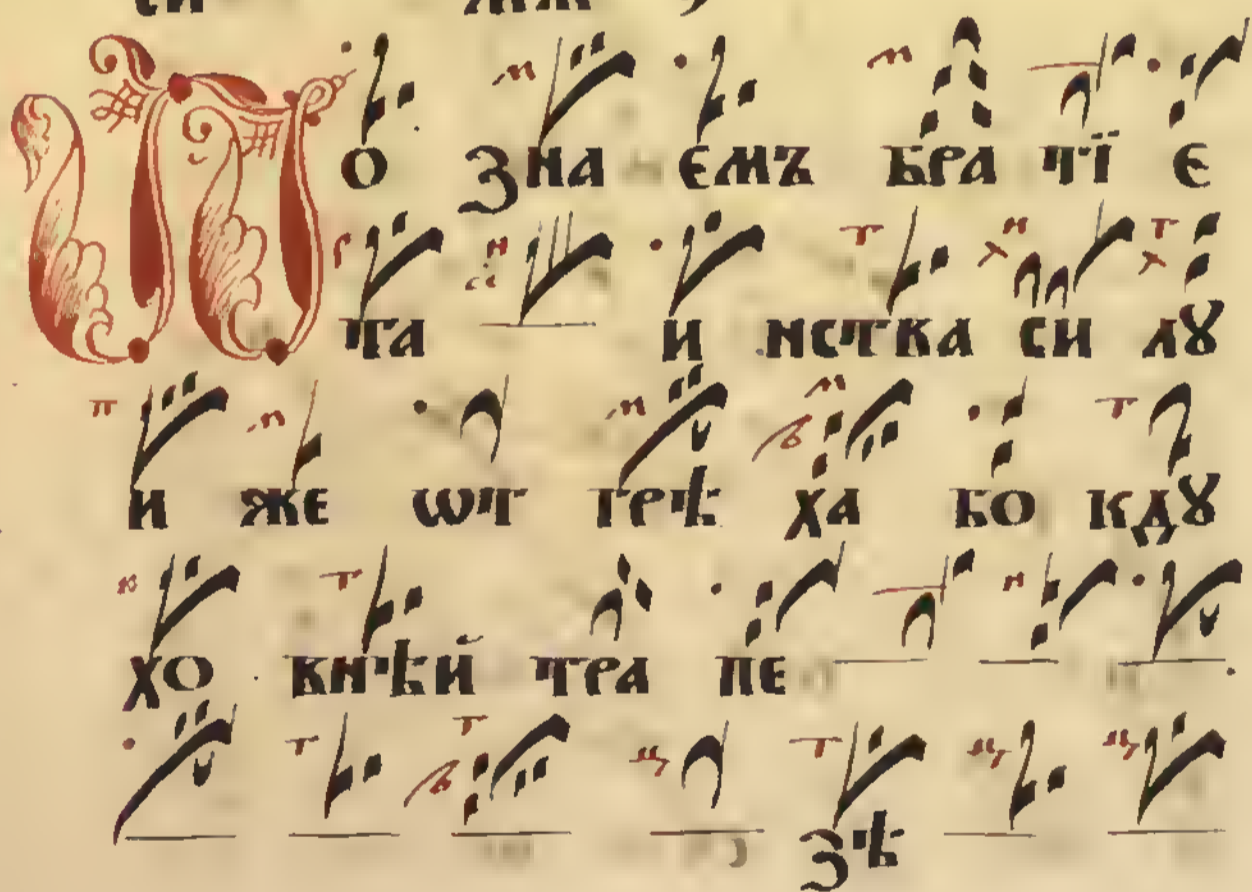 По зна емъ бра тї е
та и нства си лꙋ
и же ѡт грѣ ха бо кдꙋ
хо внѣй тра пе
зѣ